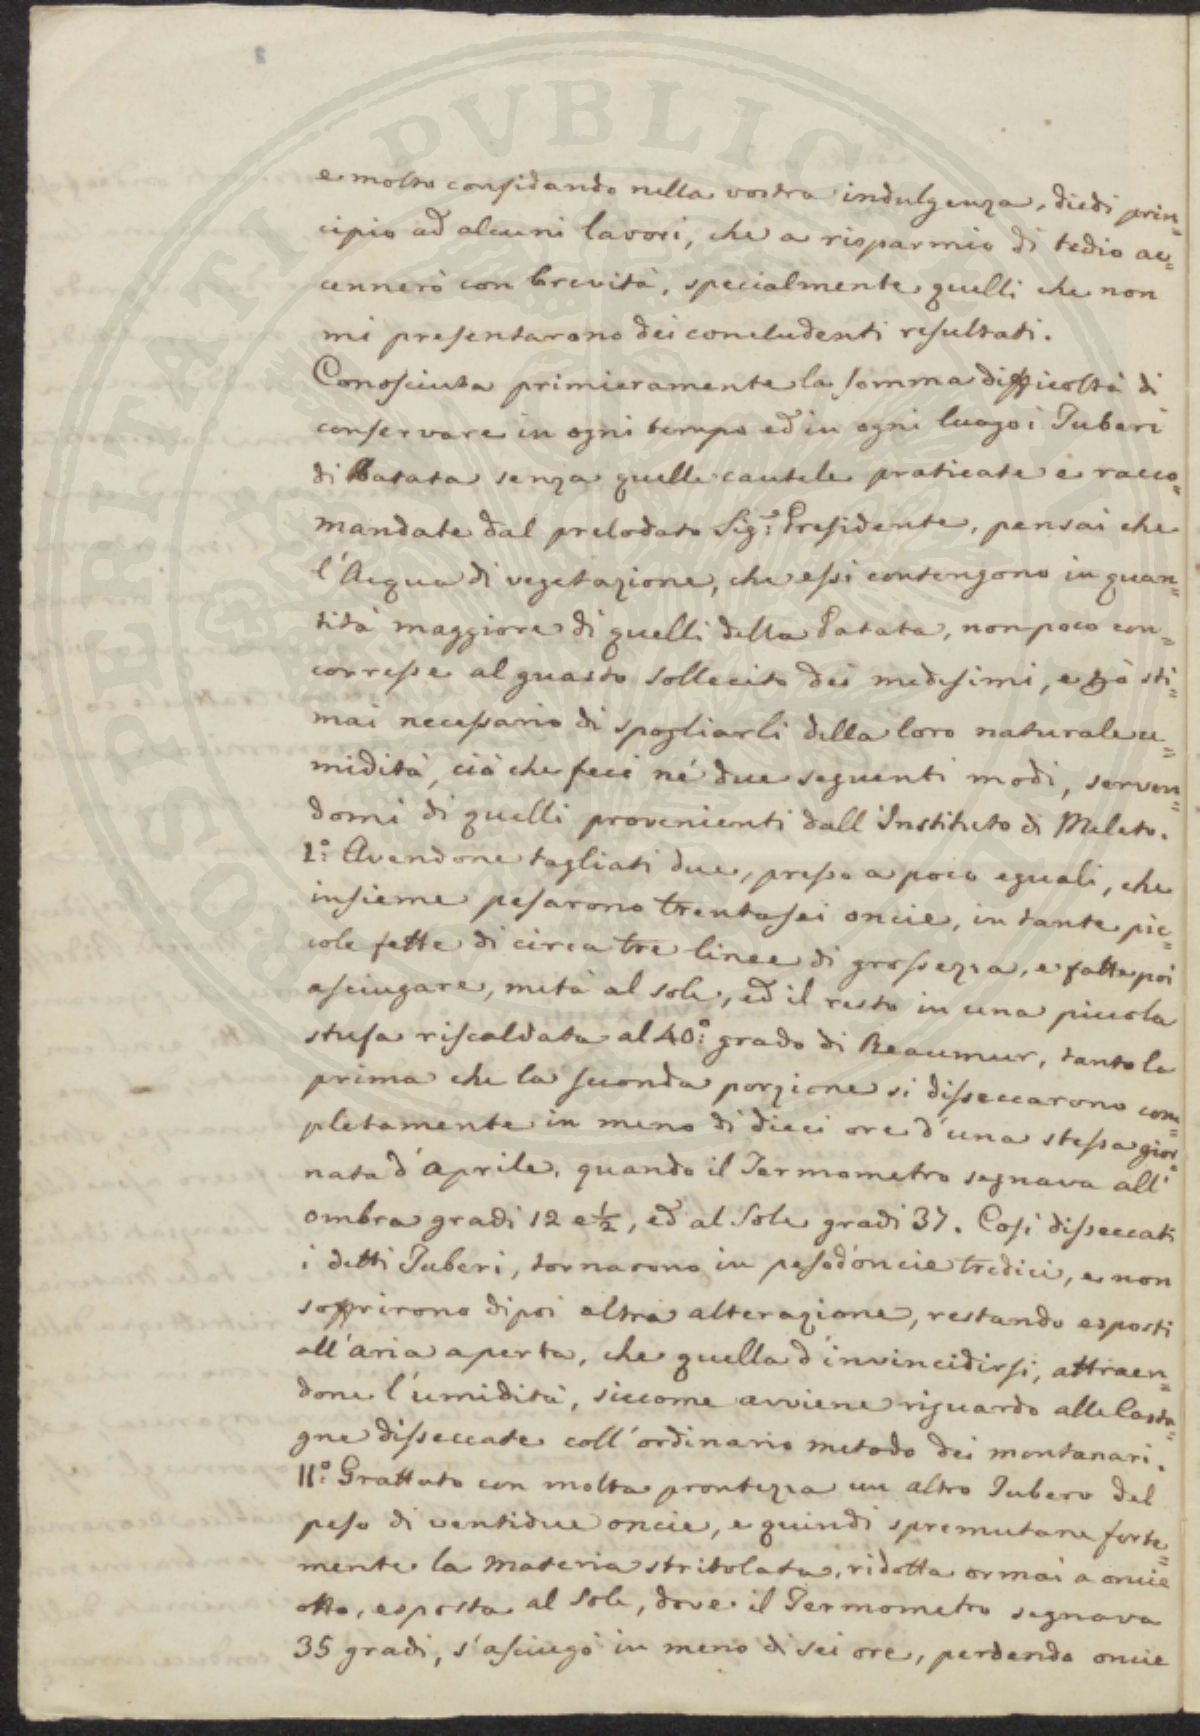 e molto confidando nella vostra indulgenza, diedi prin=
cipio ad alcuni lavori, che a risparmio di tedio ac=
cennerò con brevità, specialmente quelli che non
mi presentarono dei concludenti resultati.
Conosciuta primieramente la somma difficoltà di
conservare in ogni tempo ed in ogni luogo i Tuberi
di Batata senza quelle cautele praticate e racco=
mandate dal prelodato Sig.e Presidente, pensai che
l'Acqua di vegetazione, che essi contengono in quan=
tità maggiore di quelli della Patata, non poco con=
corresse al guasto sollecito dei medesimi, e sti=
mai necessario di spogliarli della loro naturale u=
midità, ciò che feci né due seguenti modi, serven=
domi di quelli provenienti dall'Instituto di Meleto.
1.° Avendone tagliati due, presso a poco eguali, che
insieme pesarono trentasei oncie, in tante pic=
cole fette di circa tre linee di grossezza, e fatte poi
asciugare, metà al sole, ed il resto in una piccola
stufa riscaldata al 40.° grado di Reaumur, tanto la
prima che la seconda porzione si disseccarono com=
pletamente in meno di dieci ore d'una stessa gior=
nata d'Aprile, quando il Termometro segnava all'
ombra gradi 12 e ½, ed al Sole gradi 37. Così disseccati
i detti Tuberi, tornarono in peso d'oncie tredici, e non
soffrirono dipoi altra alterazione, restando esposti
all'aria aperta, che quella d'invincidirsi, attraen=
done l'umidità, siccome avviene riguardo alle Casta=
gne disseccate coll'ordinario metodo dei montanari.
II.° Grattato con molta prontezza un altro Tubero del
peso di ventidue oncie, e quindi spremutane forte=
mente la materia stritolata, ridotta ormai a oncie
otto, esposta al Sole, dove il Termometro segnava
35 gradi, s'asciugò in meno di sei ore, perdendo oncie
PROSPERITATI PVBLICAE